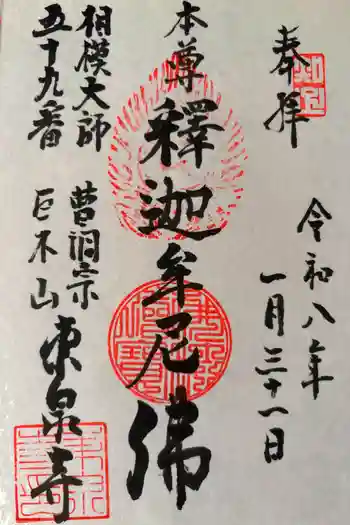 奉拝
令和八年
一月三十一日
本尊
釋迦牟尼佛
相模大師
五十九番
曹洞宗
巨木山
東泉寺